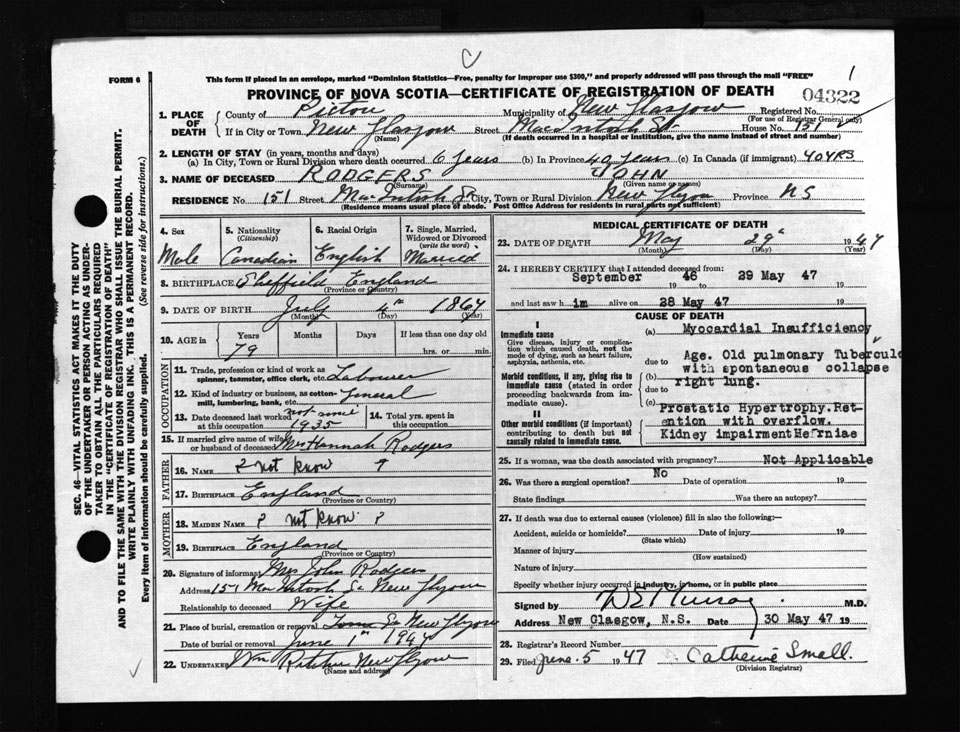 FORM 6
This form if placed in an envelope, marked "Dominion Statistics—Free, penalty for improper use $300," and properly addressed will pass through the mail "FREE"
1
PROVINCE OF NOVA SCOTIA—CERTIFICATE OF REGISTRATION OF DEATH
04322
1. PLACE OF DEATH
County of Pictou Municipality of New Glasgow Registered No.
(For use of Registrar General only)
If in City or Town New Glasgow Street MacIntosh St House No. 151
(Name) (If death occurred in a hospital or institution, give the name instead of street and number)
2. LENGTH OF STAY (in years, months and days)
(a) In City, Town or Rural Division where death occurred 6 years (b) In Province 40 years (c) In Canada (if immigrant) 40 YRS
3. NAME OF DECEASED RODGERS JOHN
(Surname) (Given name or names)
RESIDENCE No. 151 Street MacIntosh St City, Town or Rural Division New Glgow Province N S
(Residence means usual place of abode. Post Office Address for residents in rural parts not sufficient)
4. Sex
Male
5. Nationality
(Citizenship)
Canadian
6. Racial Origin
English
7. Single, Married, Widowed or Divorced
(write the word)
Married
8. BIRTHPLACE Sheffield England
(Province or Country)
9. DATE OF BIRTH July 4th 1867
(Month) (Day) (Year)
10. AGE in
Years Months Days If less than one day old
79 hrs. or min.
OCCUPATION
11. Trade, profession or kind of work as
spinner, teamster, office clerk, etc. Labourer
12. Kind of industry or business, as cotton-
mill, lumbering, bank, etc. General
13. Date deceased last worked not since
at this occupation 1935
14. Total yrs. spent in
this occupation
15. If married give name of wife
or husband of deceased Mrs Hannah Rodgers
FATHER
16. NAME ? not know ?
17. BIRTHPLACE England
(Province or Country)
MOTHER
18. MAIDEN NAME ? not know ?
19. BIRTHPLACE England
(Province or Country)
20. Signature of informant Mrs John Rodgers
Address 151 MacIntosh St New Glgow
Relationship to deceased Wife
21. Place of burial, cremation or removal New Glgow
Date of burial or removal June 1st 1947
22. UNDERTAKER Wm Ritchie New Glgow
(Name and address)
MEDICAL CERTIFICATE OF DEATH
23. DATE OF DEATH May 29th 1947
(Month) (Day) (Year)
24. I HEREBY CERTIFY that I attended deceased from:
September 46 29 May 47
19 to 19
and last saw him alive on 28 May 47 19
CAUSE OF DEATH
I
Immediate cause
Give disease, injury or complication which caused death, not the mode of dying, such as heart failure, asphyxia, asthenia, etc.
(a) Myocardial Insufficiency
due to
Morbid conditions, if any, giving rise to immediate cause (stated in order proceeding backwards from immediate cause).
(b) Age. Old pulmonary Tubercul
with spontaneous collapse
right lung.
due to
(c)
II
Other morbid conditions (if important) contributing to death but not causally related to immediate cause.
Prostatic Hypertrophy. Ret-
ention with overflow.
Kidney impairment Herniae
25. If a woman, was the death associated with pregnancy? Not Applicable
26. Was there a surgical operation? No Date of operation 19
State findings Was there an autopsy?
27. If death was due to external causes (violence) fill in also the following:—
Accident, suicide or homicide? Date of injury 19
(State which)
Manner of injury
(How sustained)
Nature of injury
Specify whether injury occurred in industry, in home, or in public place
Signed by D E Murray M.D.
Address New Glasgow, N.S. Date 30 May 47 19
28. Registrar's Record Number
29. Filed June 5 1947 Catherine Small.
(Division Registrar)
SEC. 46—VITAL STATISTICS ACT MAKES IT THE DUTY
OF THE UNDERTAKER OR PERSON ACTING AS UNDER-
TAKER TO OBTAIN ALL THE PARTICULARS REQUIRED
IN THE "CERTIFICATE OF REGISTRATION OF DEATH"
AND TO FILE THE SAME WITH THE DIVISION REGISTRAR WHO SHALL ISSUE THE BURIAL PERMIT.
WRITE PLAINLY WITH UNFADING INK. THIS IS A PERMANENT RECORD.
Every item of information should be carefully supplied. (See reverse side for instructions.)